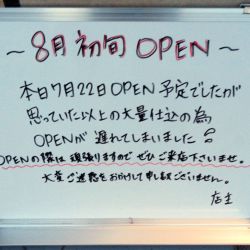 ～8月初旬 OPEN～
本日7月22日OPEN予定でしたが
思っていた以上の大量仕込の為
OPENが遅れてしまいました
OPENの際は頑張りますので ぜひご来店下さいませ。
大変ご迷惑をおかけして申し訳ございません。
店主